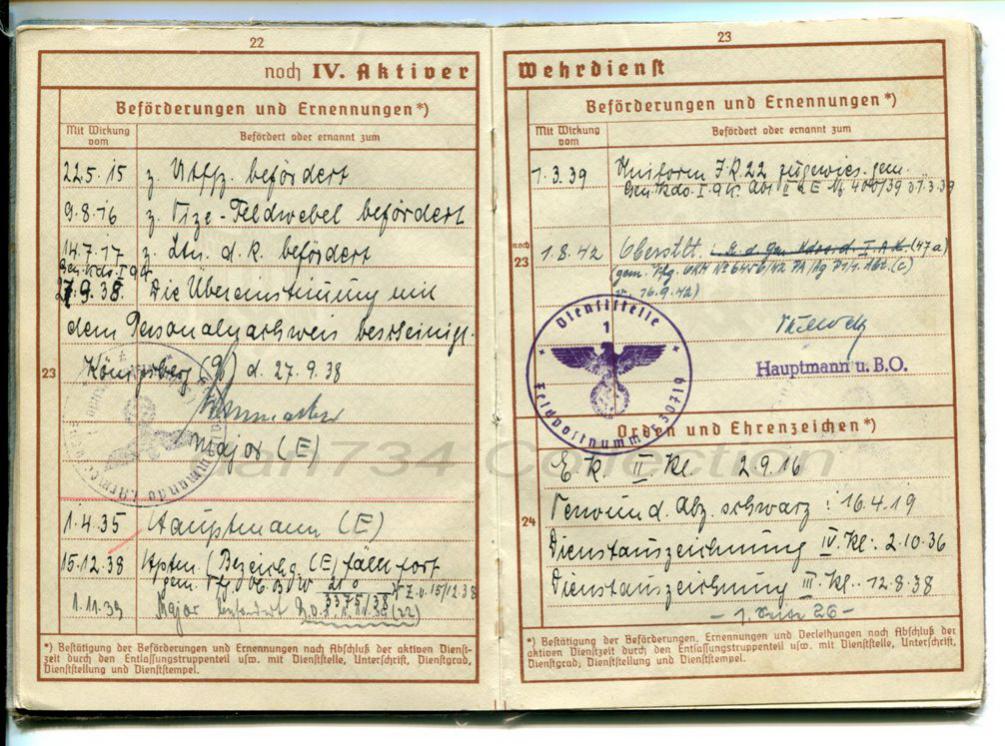 22
noch IV. Aktiver
Beförderungen und Ernennungen *)
Mit Wirkung vom
Befördert oder ernannt zum
22.5.15 z. Uffz. befördert
9.8.16 z. Vize-Feldwebel befördert
14.7.17 z. Ltn. d. R. befördert
Gen. Kdo. I. A.K.
27.9.38. Die Übereinstimmung mit
dem Personalnachweis bescheinigt.
23
Königsberg (Pr) d. 27.9.38
Major (E)
1.4.35 Hauptmann (E)
15.12.38 Hptm. (Bezeichg. (E) fällt fort
gem. Vfg. Ob. 15/12.38
1.11.39 Major befördert (22)
*) Bestätigung der Beförderungen und Ernennungen nach Abschluß der aktiven Dienst-
zeit durch den Entlassungstruppenteil usw. mit Dienststelle, Unterschrift, Dienstgrad,
Dienststellung und Dienststempel.
23
Wehrdienst
Beförderungen und Ernennungen *)
Mit Wirkung vom
Befördert oder ernannt zum
1.3.39 Uniform I.R. 22 zugewies. gem.
Gen. Kdo. I. A.K. Abt. II a E Nr. 400/39 v. 1.3.39
noch 23
1.8.42 Oberstlt. (47a)
(gem. Vfg. OKH No 6456/42 PA/Ag P1/1. Abt. (c)
v. 16.9.42)
Dienststelle
Feldpostnummer 30719
Hauptmann u. B.O.
Orden und Ehrenzeichen *)
24
E. K. II Kl. 2.9.16
Verwund. Abz. schwarz : 16.4.19
Dienstauszeichnung IV. Kl.: 2.10.36
Dienstauszeichnung III. Kl. 12.8.38
26
*) Bestätigung der Beförderungen, Ernennungen und Verleihungen nach Abschluß der
aktiven Dienstzeit durch den Entlassungstruppenteil usw. mit Dienststelle, Unterschrift,
Dienstgrad, Dienststellung und Dienststempel.
734 Collection